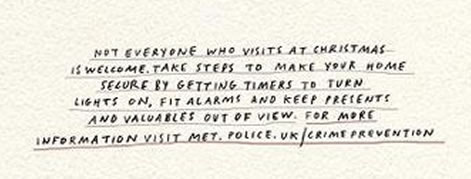 NOT EVERYONE WHO VISITS AT CHRISTMAS
IS WELCOME. TAKE STEPS TO MAKE YOUR HOME
SECURE BY GETTING TIMERS TO TURN
LIGHTS ON, FIT ALARMS AND KEEP PRESENTS
AND VALUABLES OUT OF VIEW. FOR MORE
INFORMATION VISIT MET.POLICE.UK/CRIMEPREVENTION